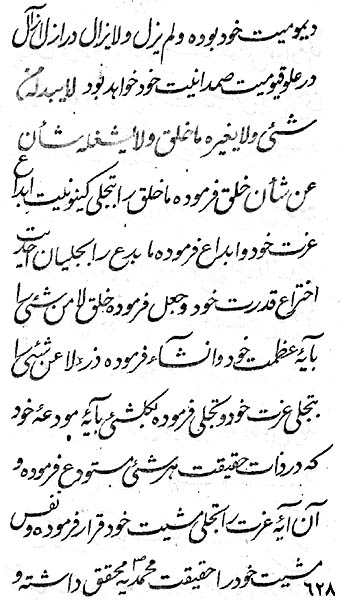 دیمومیت خود بوده و لم یزل و لا یزال در ازل ازال
در علو قیومیت صمدانیت خود خواهد بود لا یبدله من
شئی و لا یغیره ما خلق و لا یشغله شأن
عن شأن خلق فرموده ما خلق را بتجلی کینونیت ابداع
عزت خود و ابداع فرموده ما بدع را بتجلیان احدیت
اختراع قدرت خود و جعل فرموده خلق لا من شئی را
بآیهٔ عظمت خود و انشاء فرموده ذرء لا عن شئی را
بتجلی عزت خود و تجلی فرموده بکلشئی بآیهٔ مودعهٔ خود
که در ذات حقیقت هر شئی مستودع فرموده و
آن آیهٔ عزت را تجلی مشیت خود قرار فرموده و نفس
مشیت خود را حقیقت محمدیه ص محقق داشته و
٦٢٨